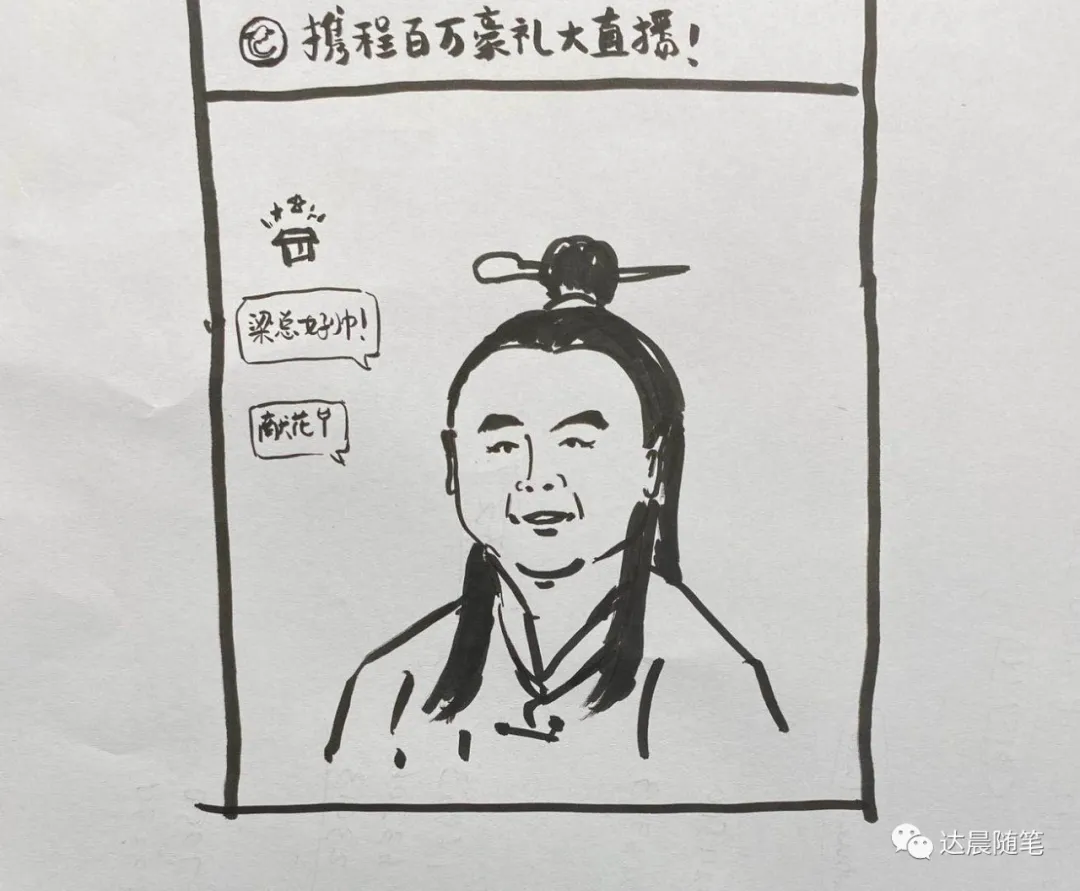 携程百万豪礼大直播!
梁总好帅!
献花
达晨随笔